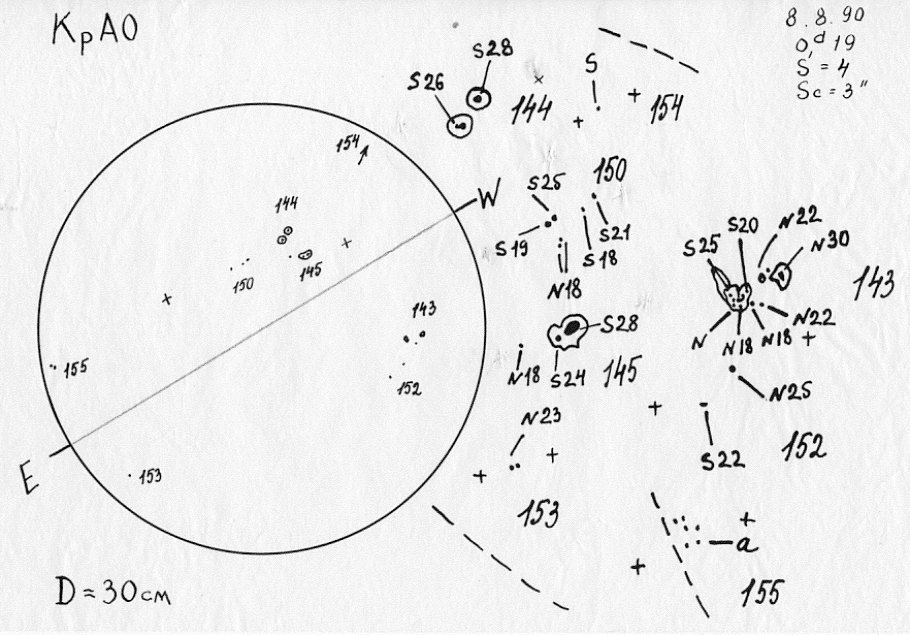 КрАО
8.8.90
0,ᵈ19
S = 4
Sc = 3"
S28
S26
144
S
154
154
W
144
150
145
S25
150
S19
S21
S18
N18
S20
N22
S25
N30
143
N22
N
N18
N18
143
152
S28
N18
S24
145
N25
155
N23
S22
152
E
153
153
a
155
D ≈ 30см